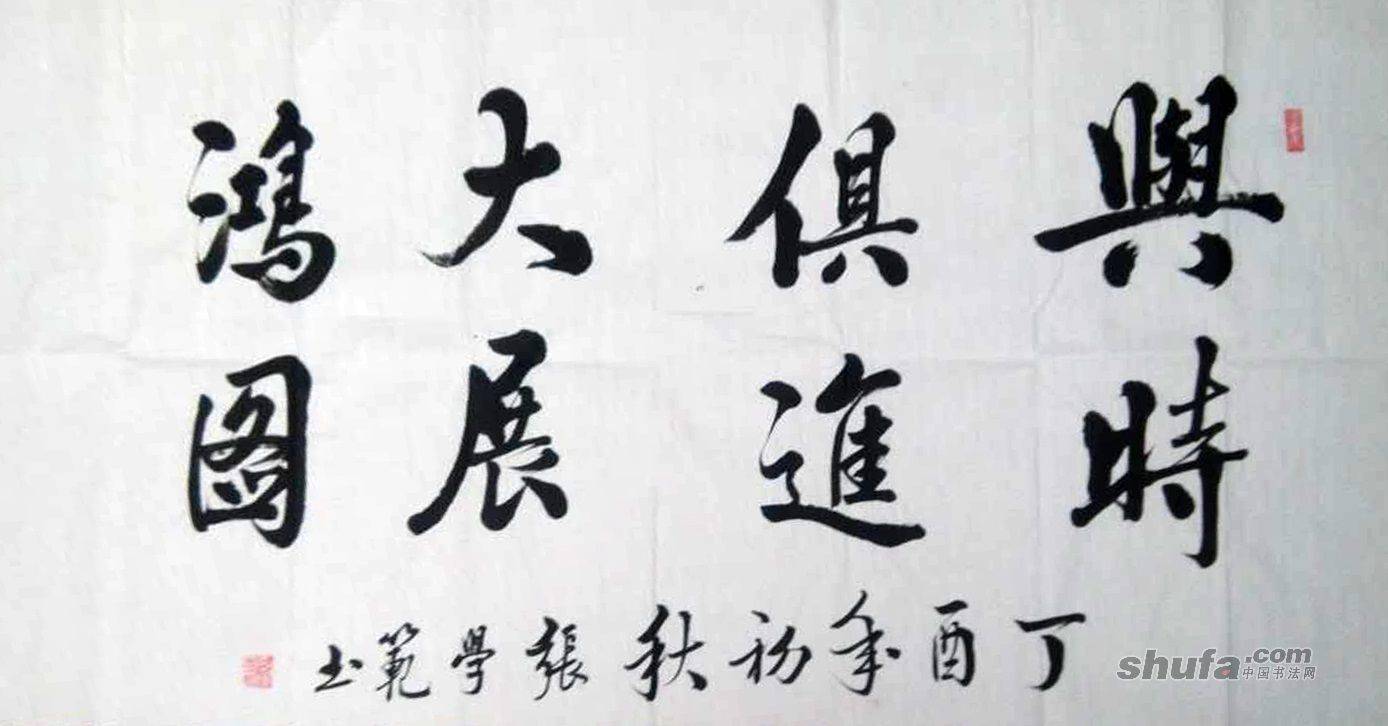 與時
俱進
大展
鴻图
丁酉年初秋張學範书
shufa.com
中国书法网